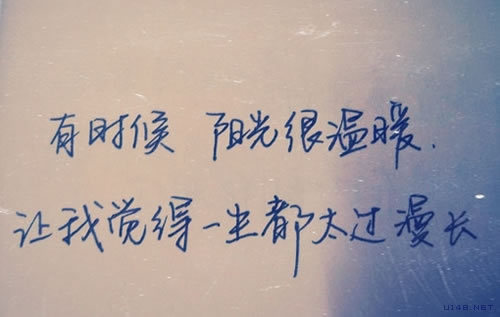 有时候 阳光很温暖.
让我觉得一生都太过漫长
U148.NET